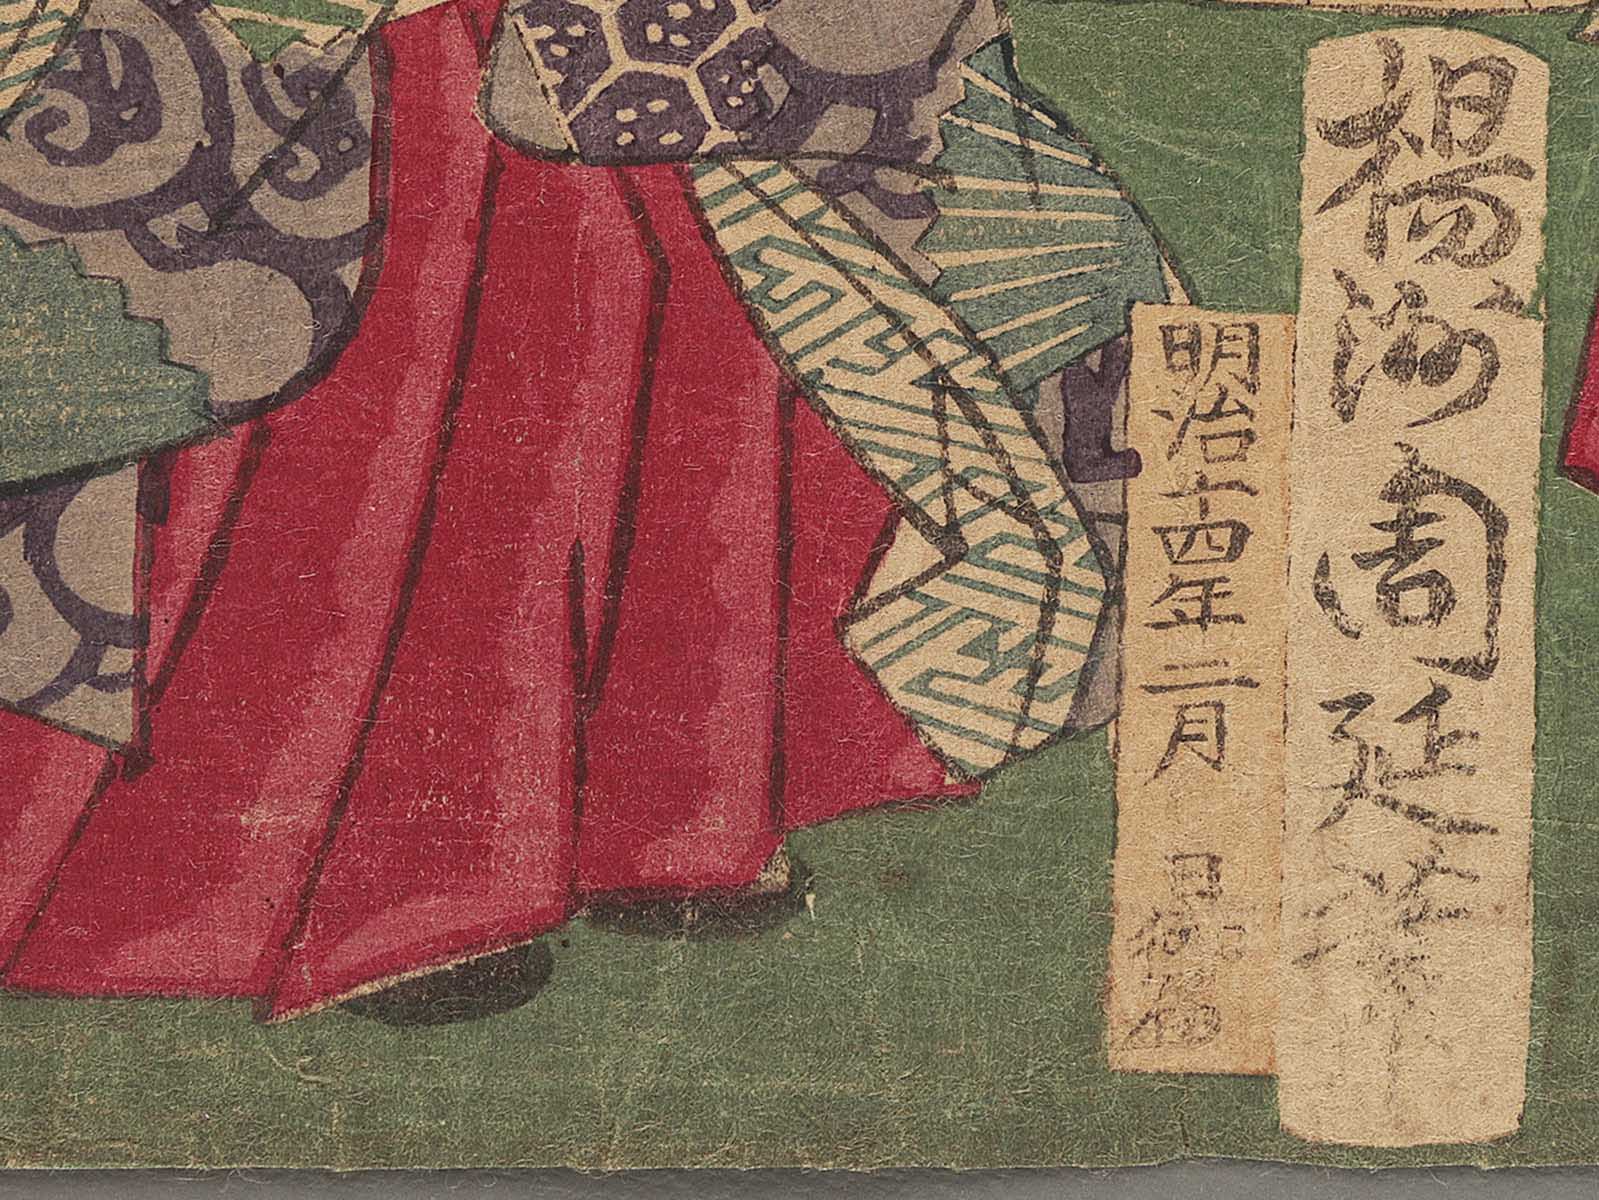 楊洲周延筆
明治十四年二月 日御届